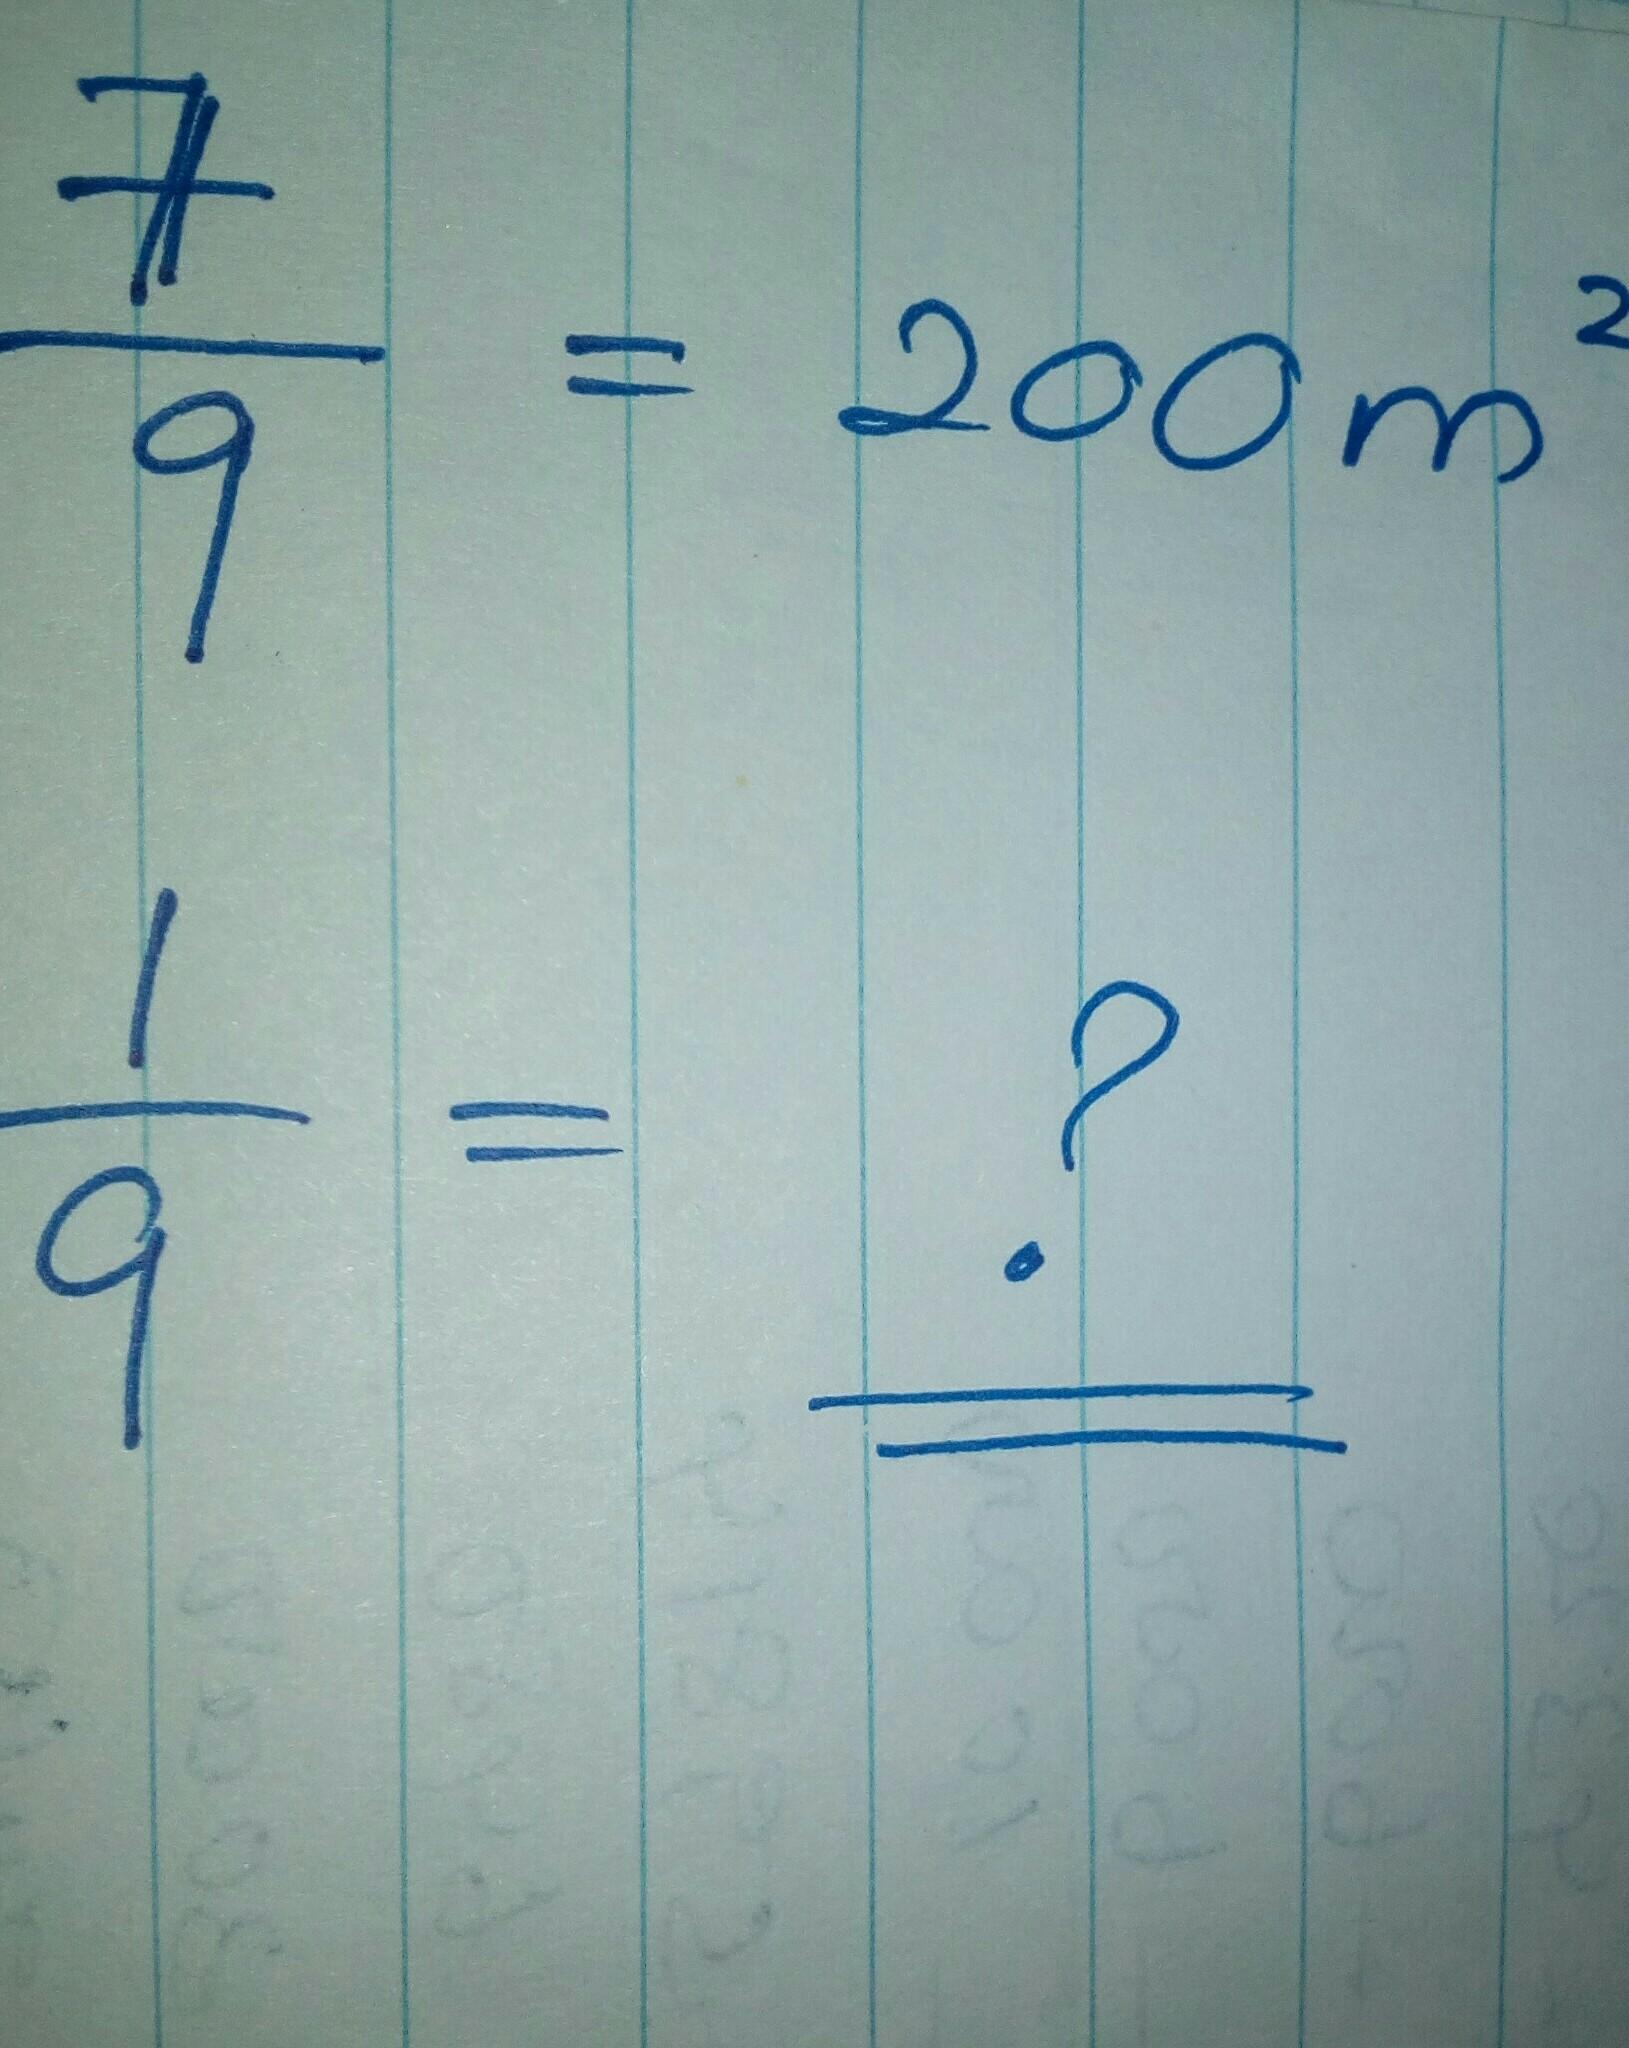 7/9 = 200m²
1/9 = ?